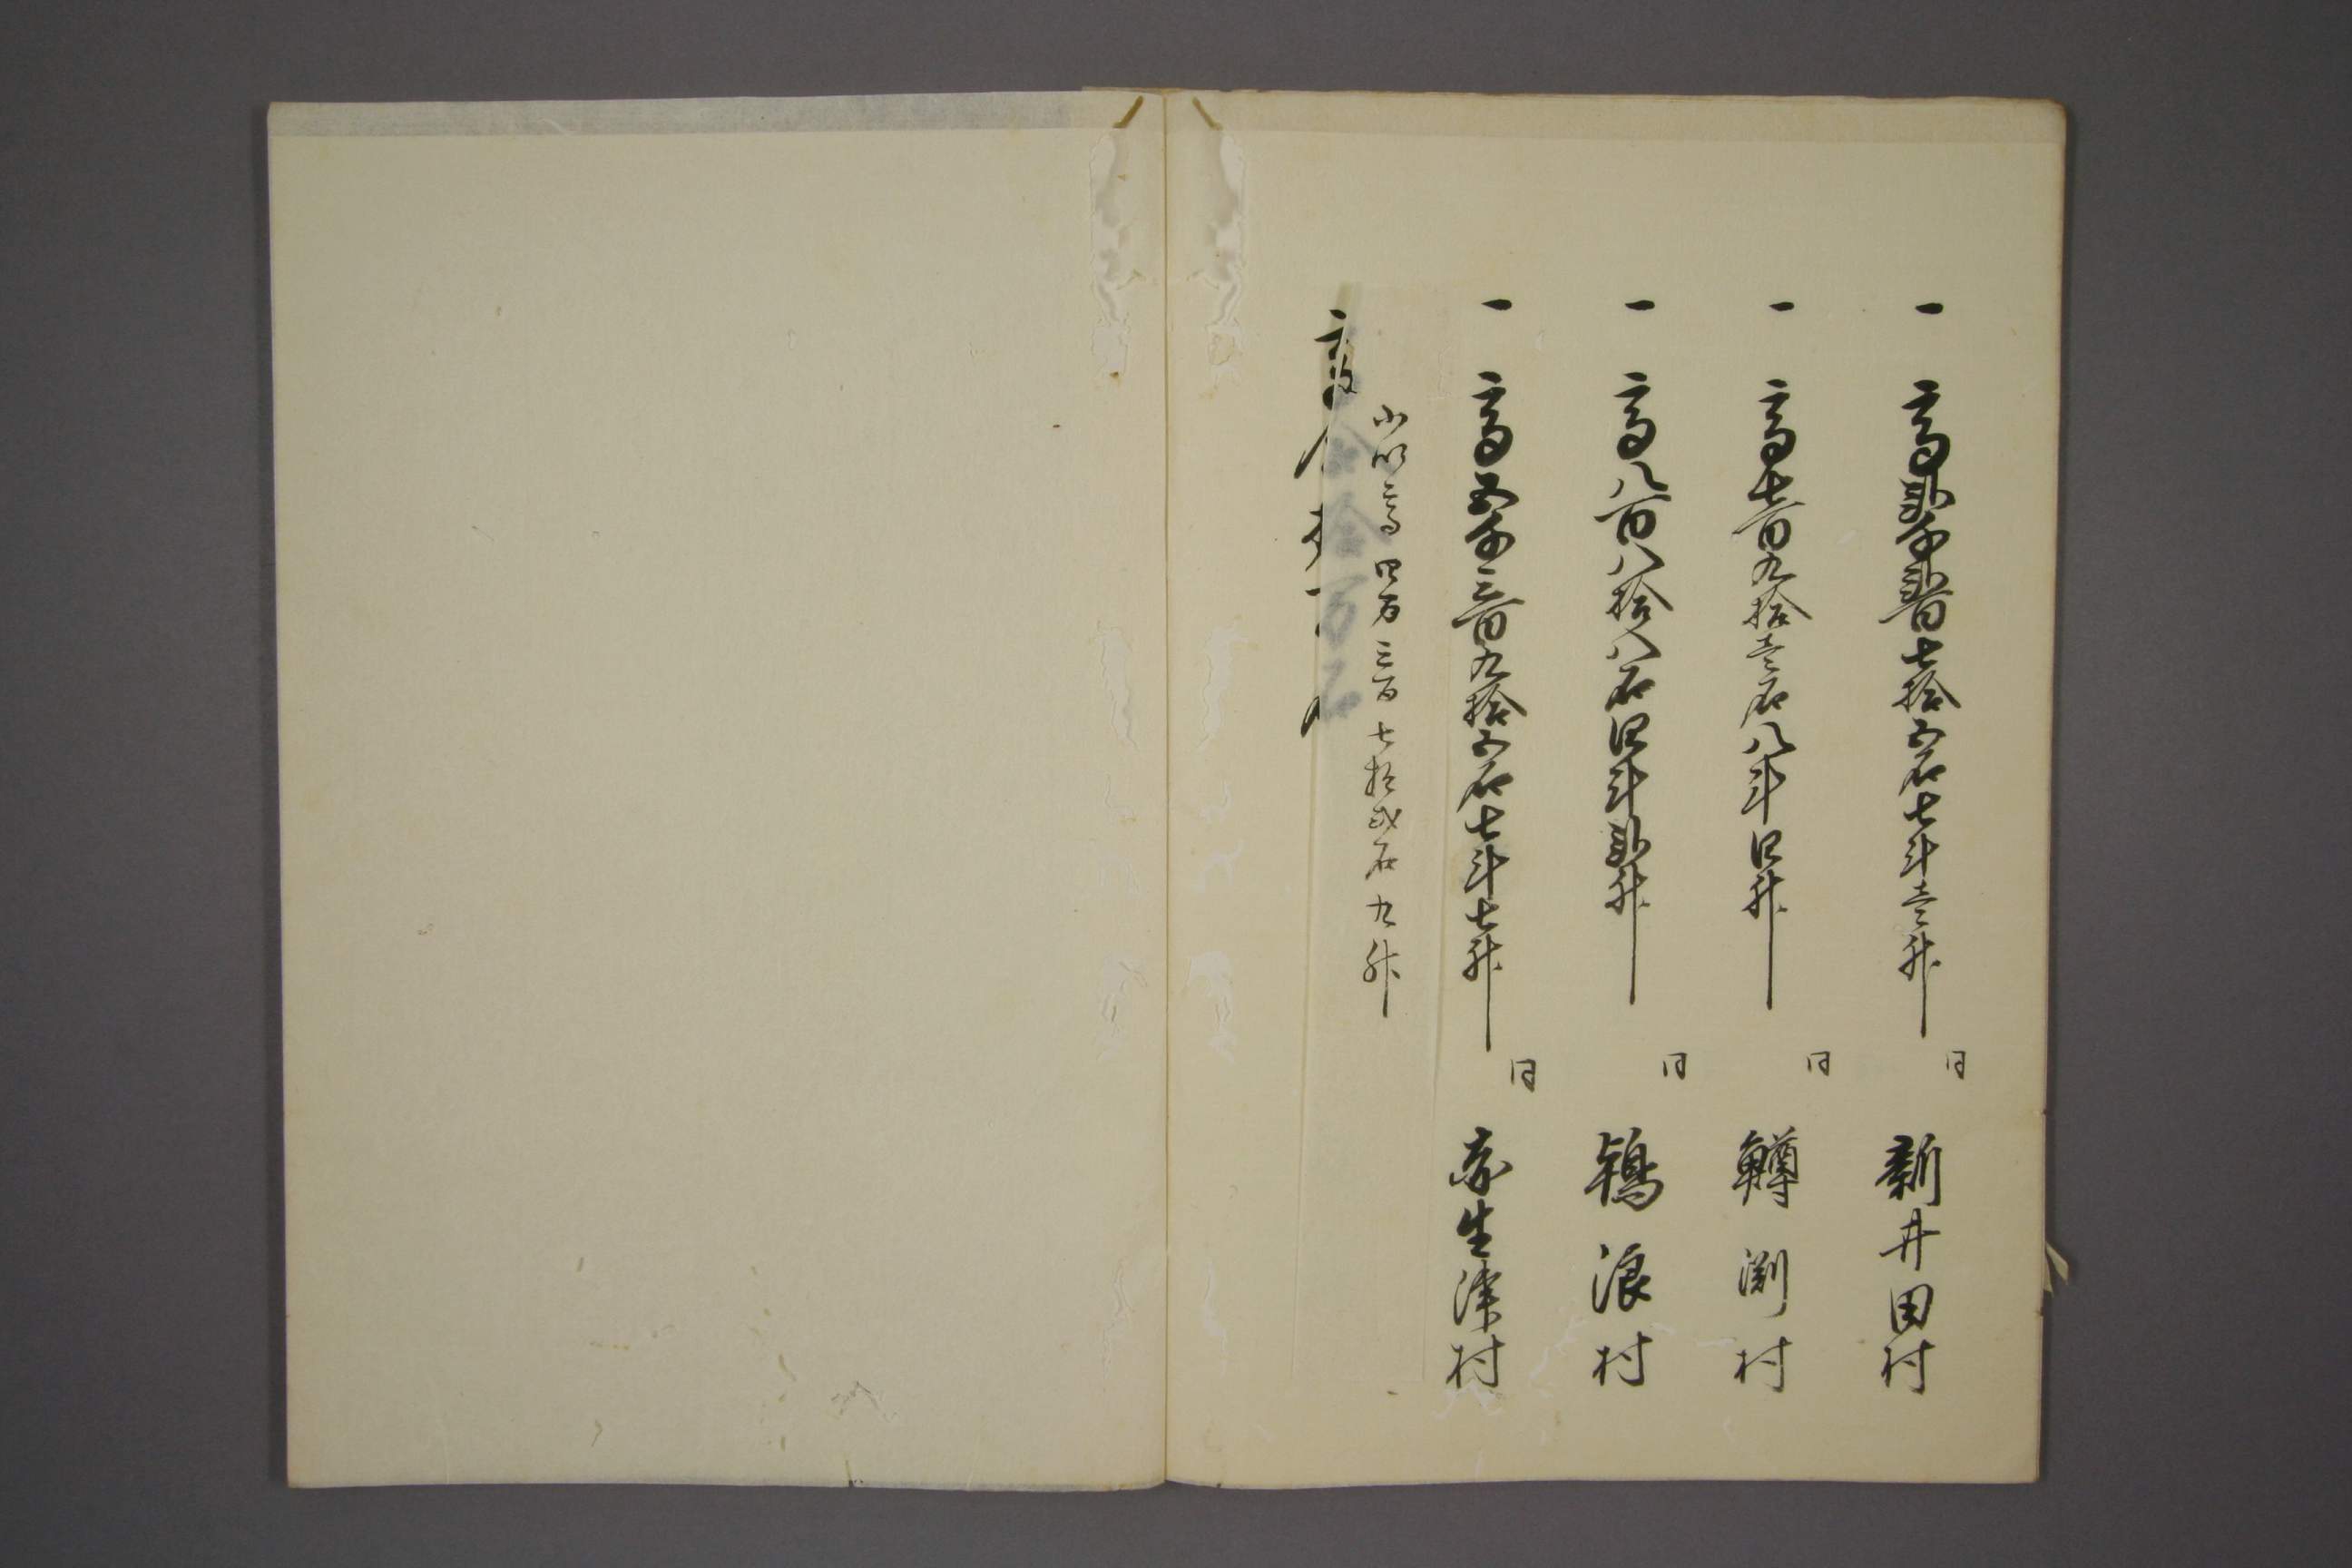 一 高弐千弐百七拾五石七斗壱升
同 新井田村
一 高七百九拾壱石八斗四升
同 鱒渕村
一 高八百八拾八石四斗弐升
同 鴇浪村
一 高五千三百九拾五石七斗七升
同 赤生津村
小以高四万三百七拾弐石九升
高合拾万石